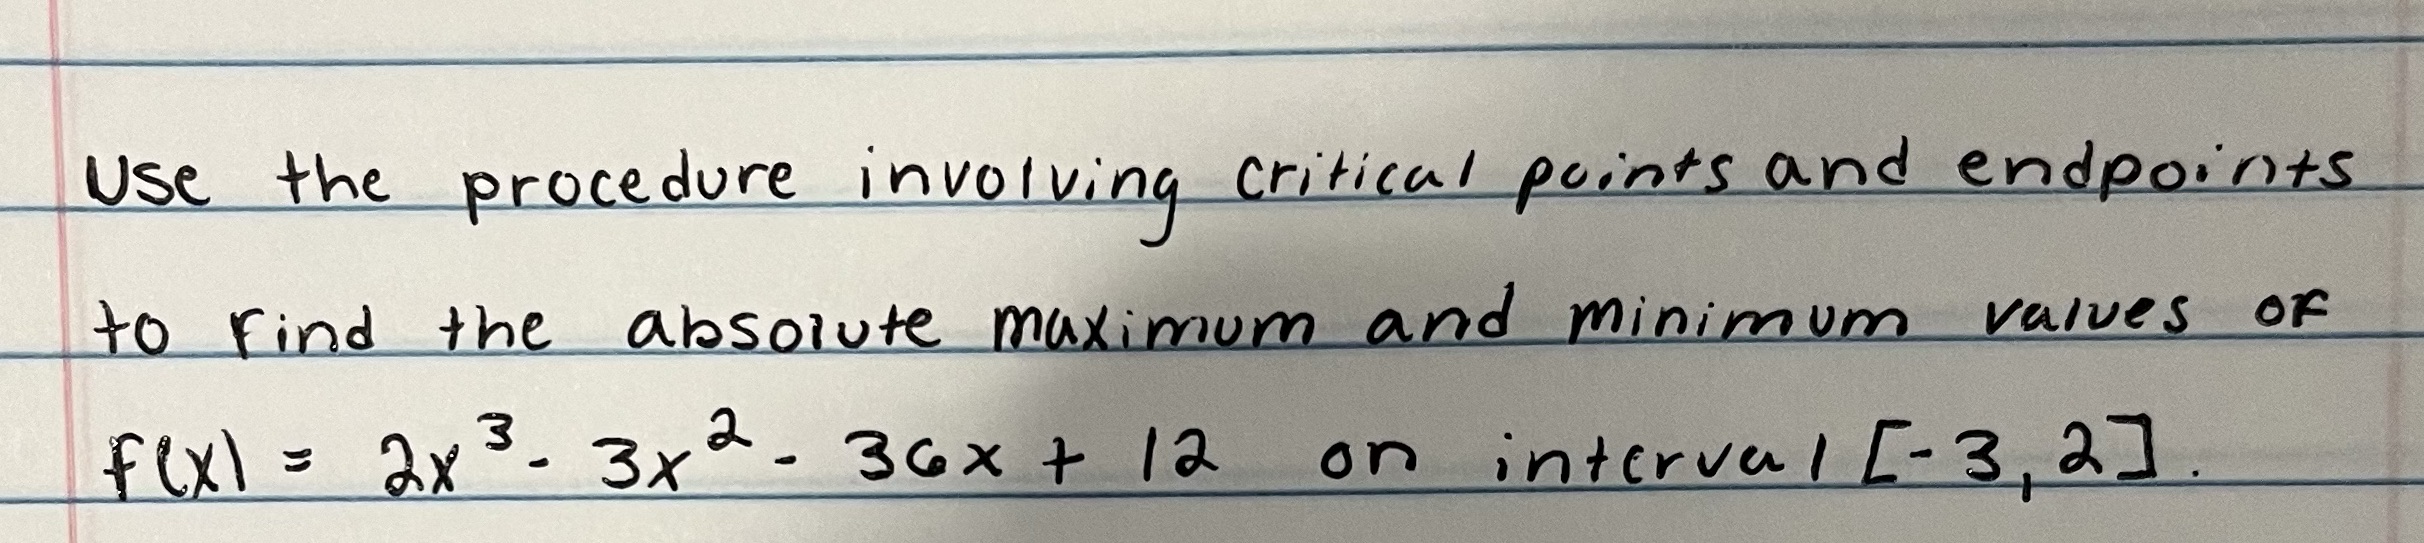 Use the procedure involving critical points and endpoints
to find the absolute maximum and minimum values of
f(x) = 2x³ - 3x² - 36x + 12 on interval [-3, 2].